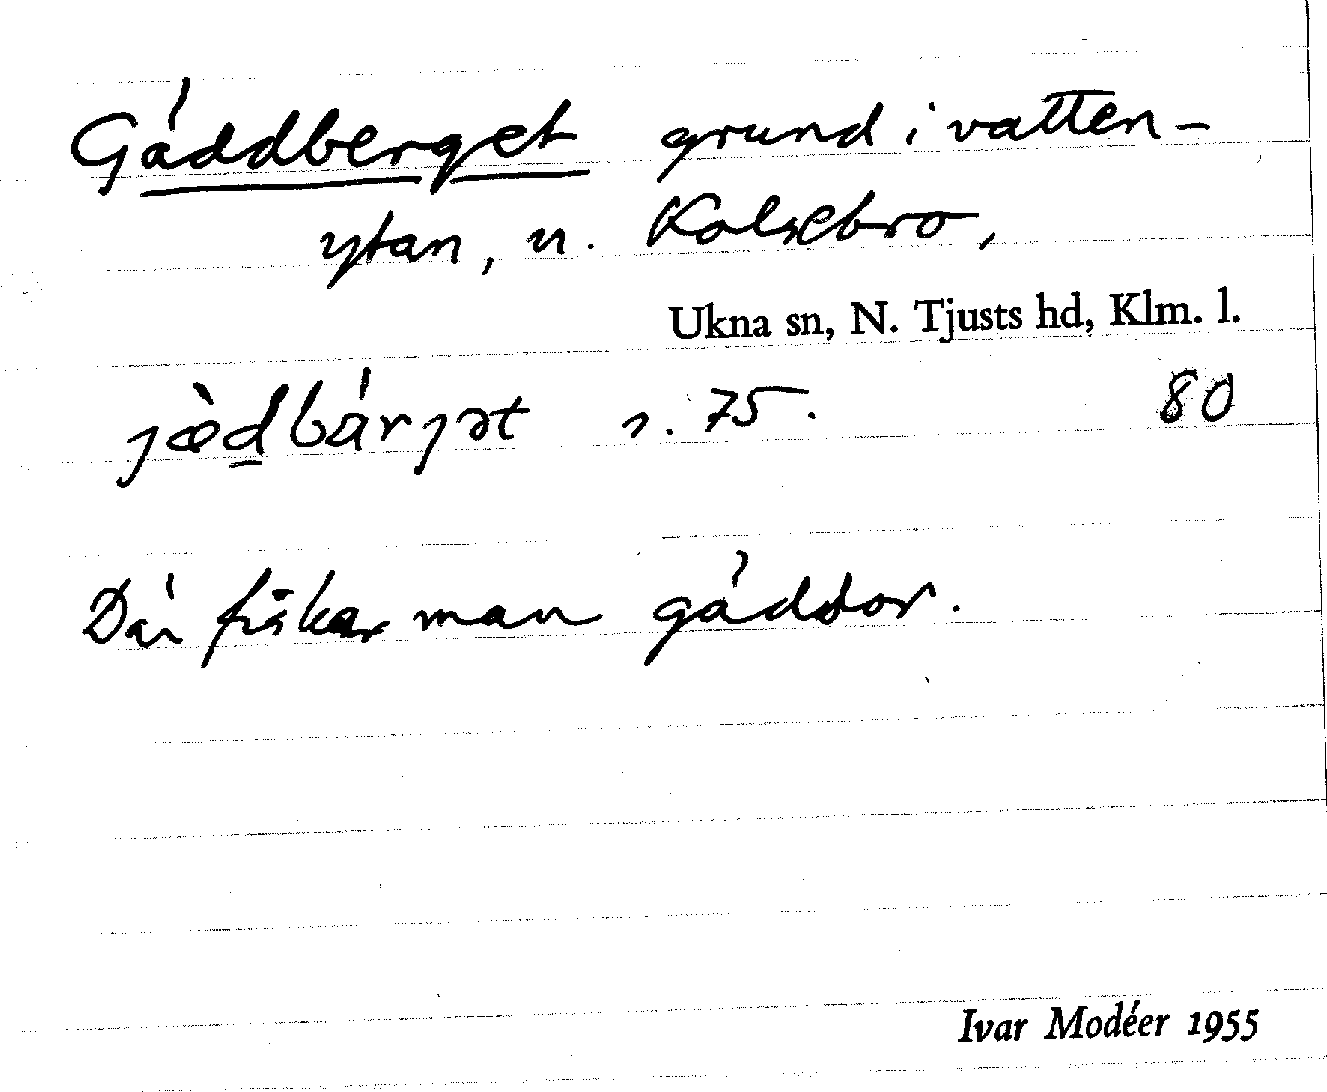 Gäddberget grund i vatten-
ytan, n. Kolsebro,
Ukna sn, N. Tjusts hd, Klm. l.
jæ̀dbárjət s. 75. 80
Där fiskar man gäddor.
Ivar Modéer 1955